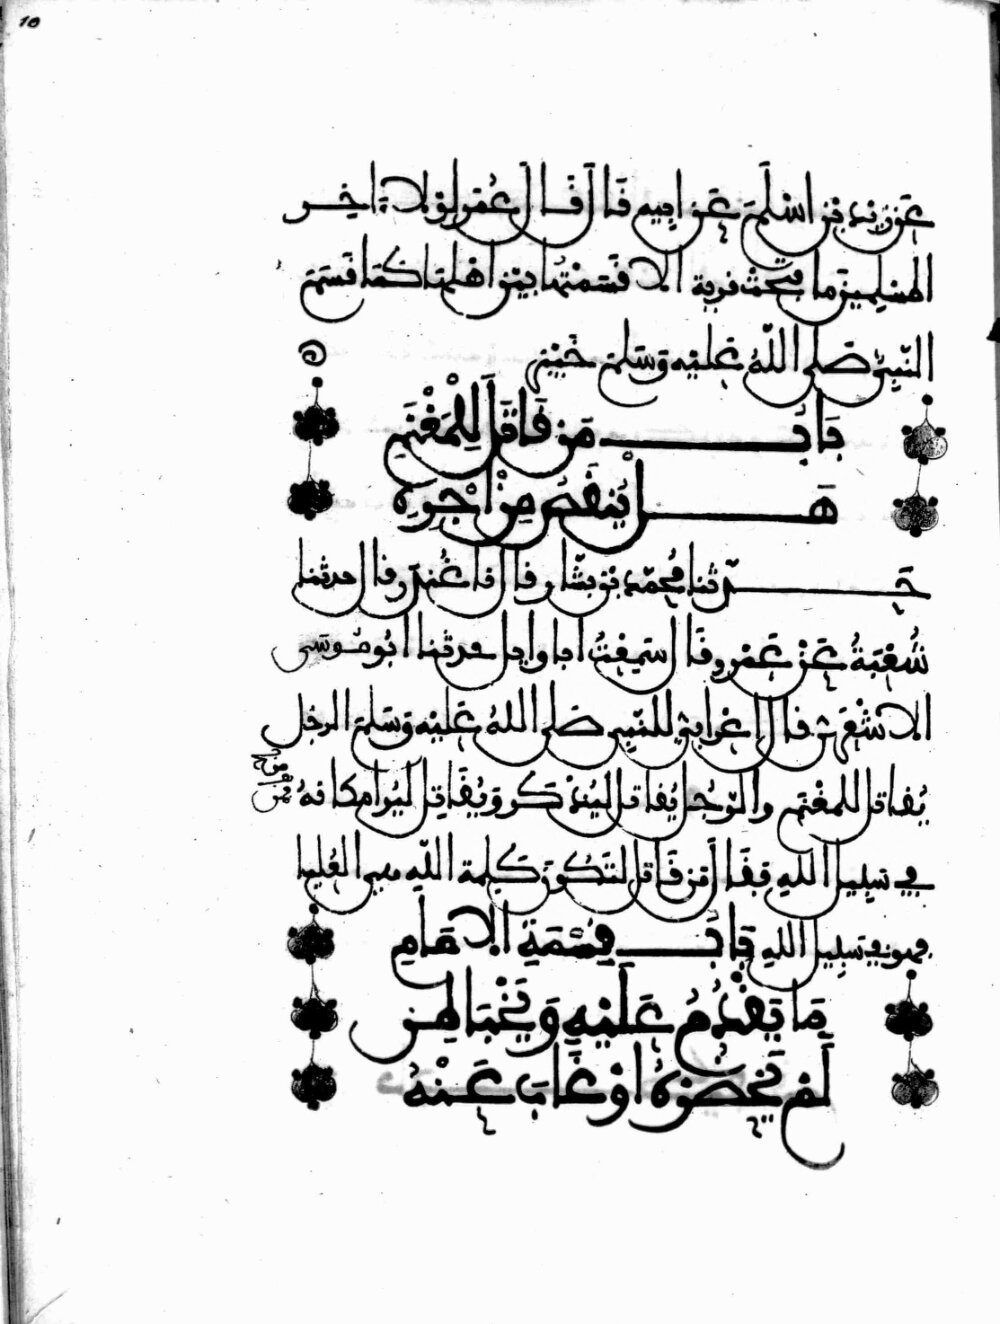 10
عن زيد بن اسلم عن ابيه قال قال عمر لولا ءاخر
المسلمين ما فتحت قرية الا قسمتها بين اهلها كما قسم
النبي صلى الله عليه وسلم خيبر
باب من قاتل للمغنم
هل ينقص من اجره
حدثنا محمد بن بشار قال نا غندر قال حدثنا
شعبة عن عمرو قال سمعت ابا وايل حدثنا ابو موسى
الاشعري قال اعرابي للنبي صلى الله عليه وسلم الرجل
يقاتل للمغنم والرجل يقاتل ليذكر ويقاتل ليرا مكانه
في سبيل الله فقال من قاتل لتكون كلمة الله هي العليا
فهو في سبيل الله باب قسمة الامام
ما يقدم عليه ويخبا لمن
لم يحضره او غاب عنه